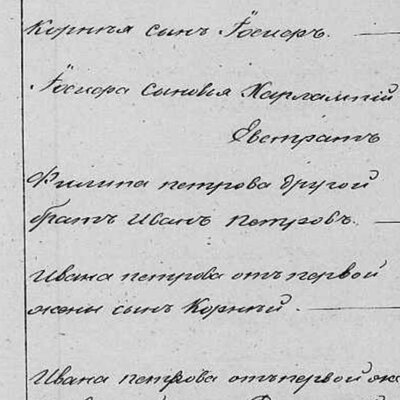 Корнѣя сынъ Ѳосиоръ.
Ѳосиора сыновья Харлампій
Евстратъ
Филипа петрова другой
братъ Иванъ Петровъ.
Ивана петрова отъ первой
жены сынъ Корнѣй.
Ивана петрова отъ первой